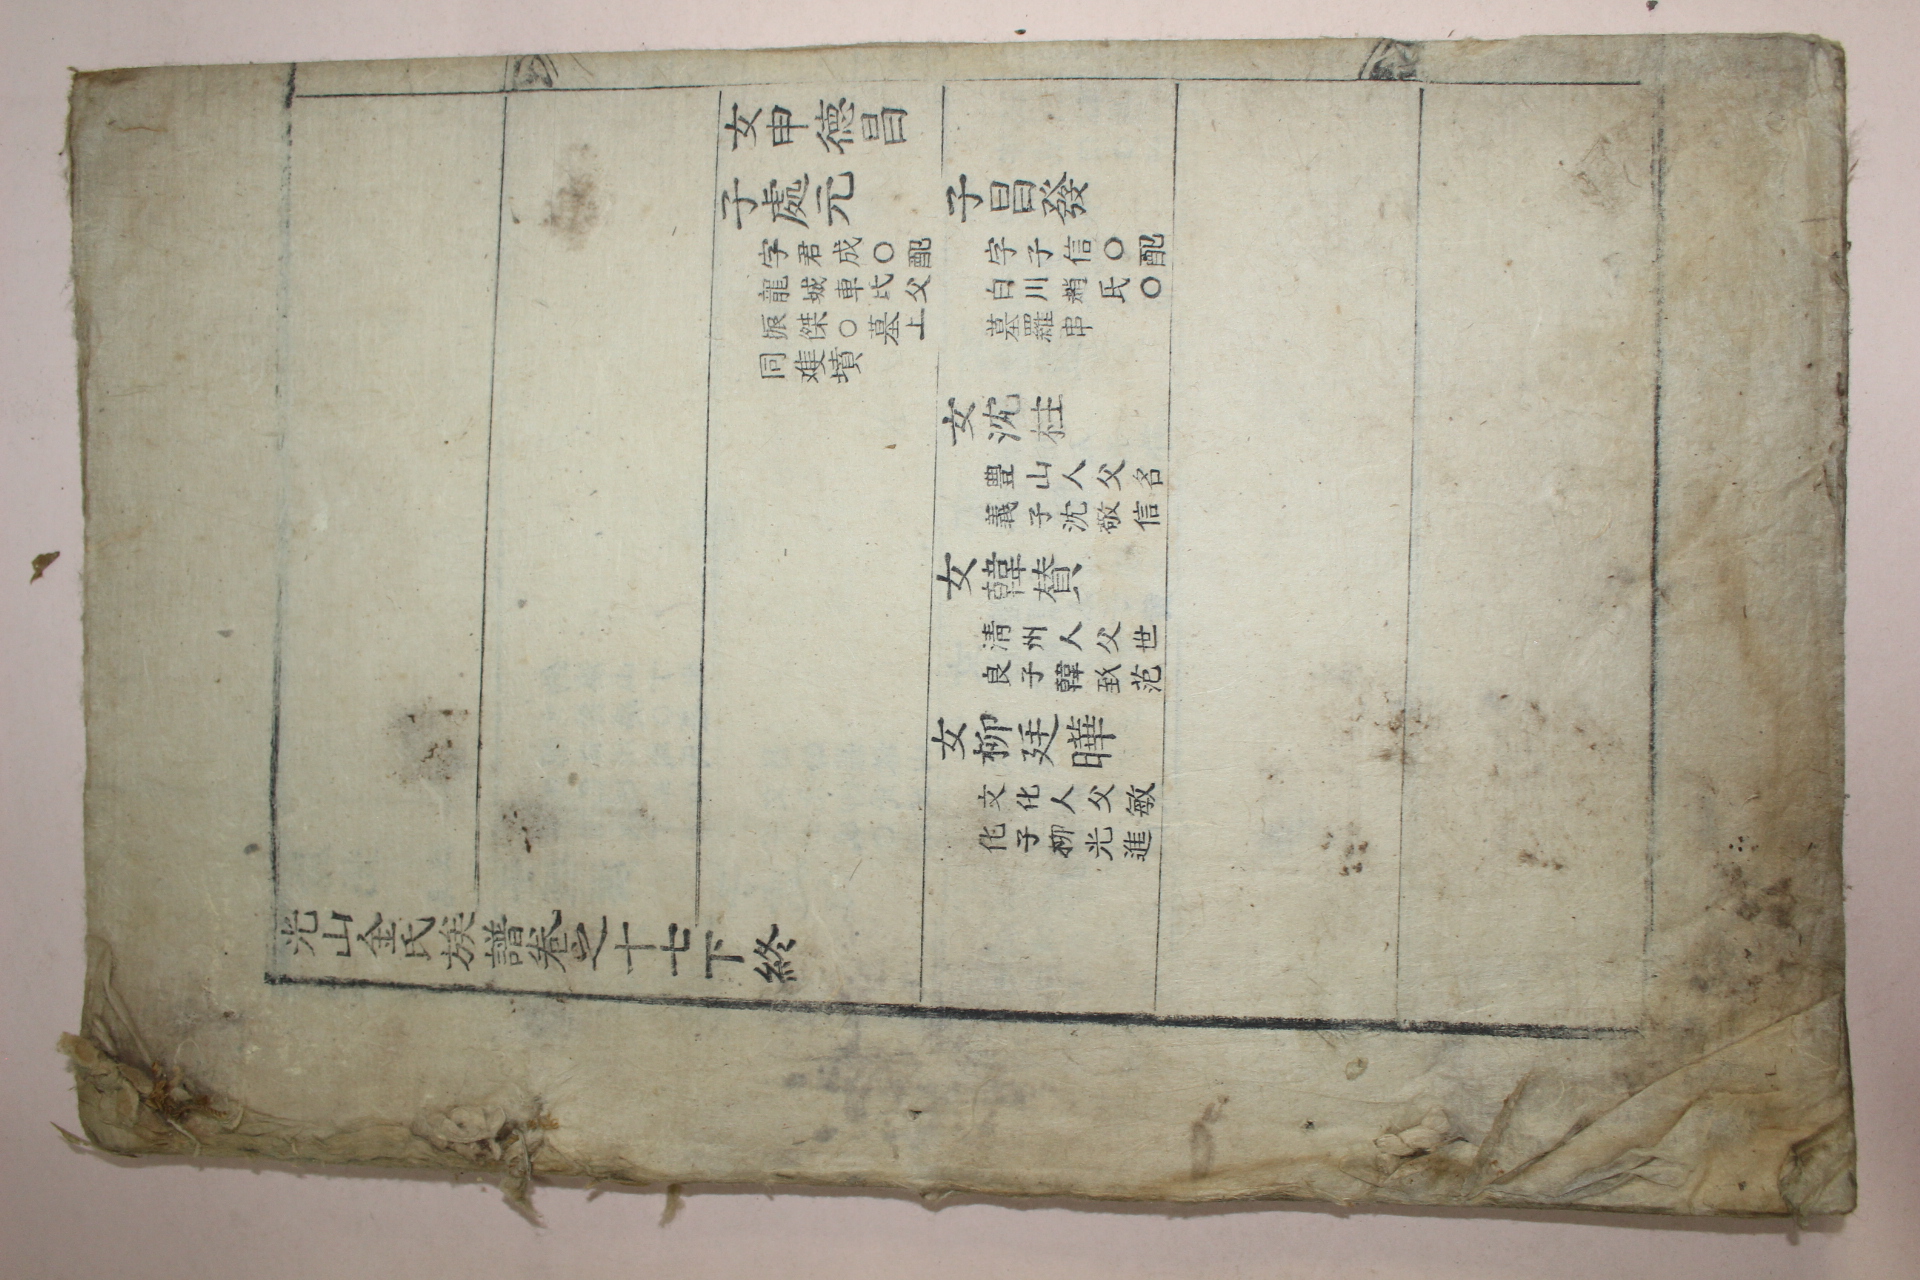 女申德昌
子處元
字君成○配
龍城車氏父
振傑○墓上
同雙墳
子昌發
字子信○配
白川趙氏○
墓羅串
女沈柱
豊山人父名
義子沈敬信
女韓賛
淸州人父世
良子韓致范
女柳廷曄
文化人父敏
化子柳光進
光山金氏族譜卷之十七下終